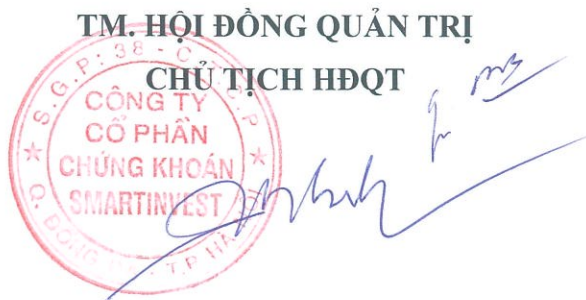 TM. HỘI ĐỒNG QUẢN TRỊ
CHỦ TỊCH HĐQT
S.G.P: 38 - C.T.C.P
CÔNG TY
CỔ PHẦN
CHỨNG KHOÁN
SMARTINVEST